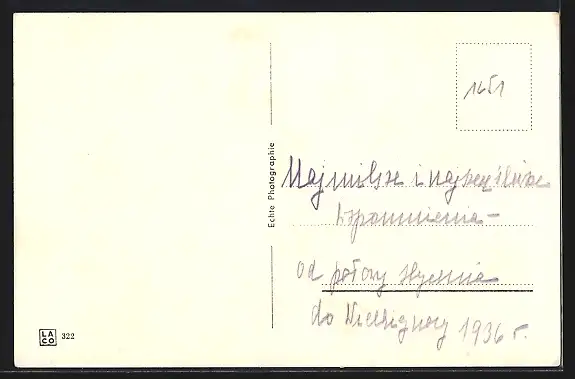 1651
Echte Photographie
Najmilsze i najszczęśliwsze
wspomnienia -
od połowy stycznia
do Wielkiejnocy 1936 r.
LA
CO
322